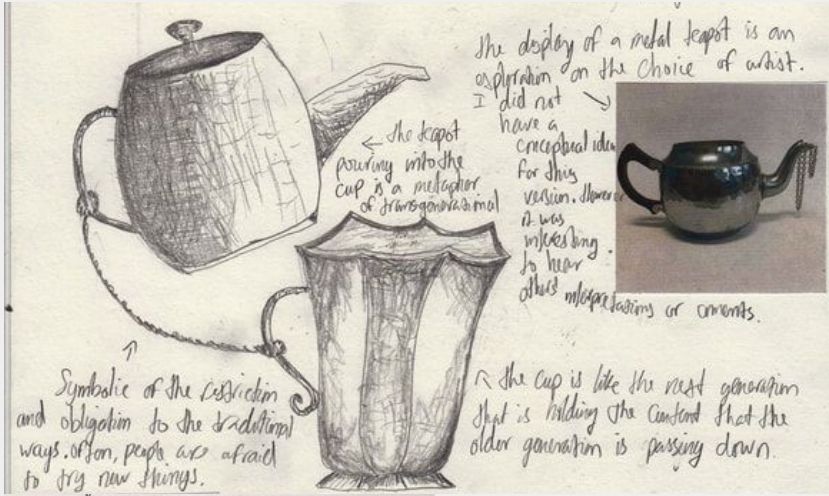 the display of a metal teapot is an
exploration on the choice of artist.
I did not
have a
conceptual idea
for this
version. However
it was
interesting
to hear
others interpretations or coments.
← the teapot
pouring into the
cup is a metapher
of transgenerational
Symbolic of the restriction
and obligation to the traditional
ways. often, people are afraid
to try new things.
the cup is like the next generation
that is holding the content that the
older generation is passing down.